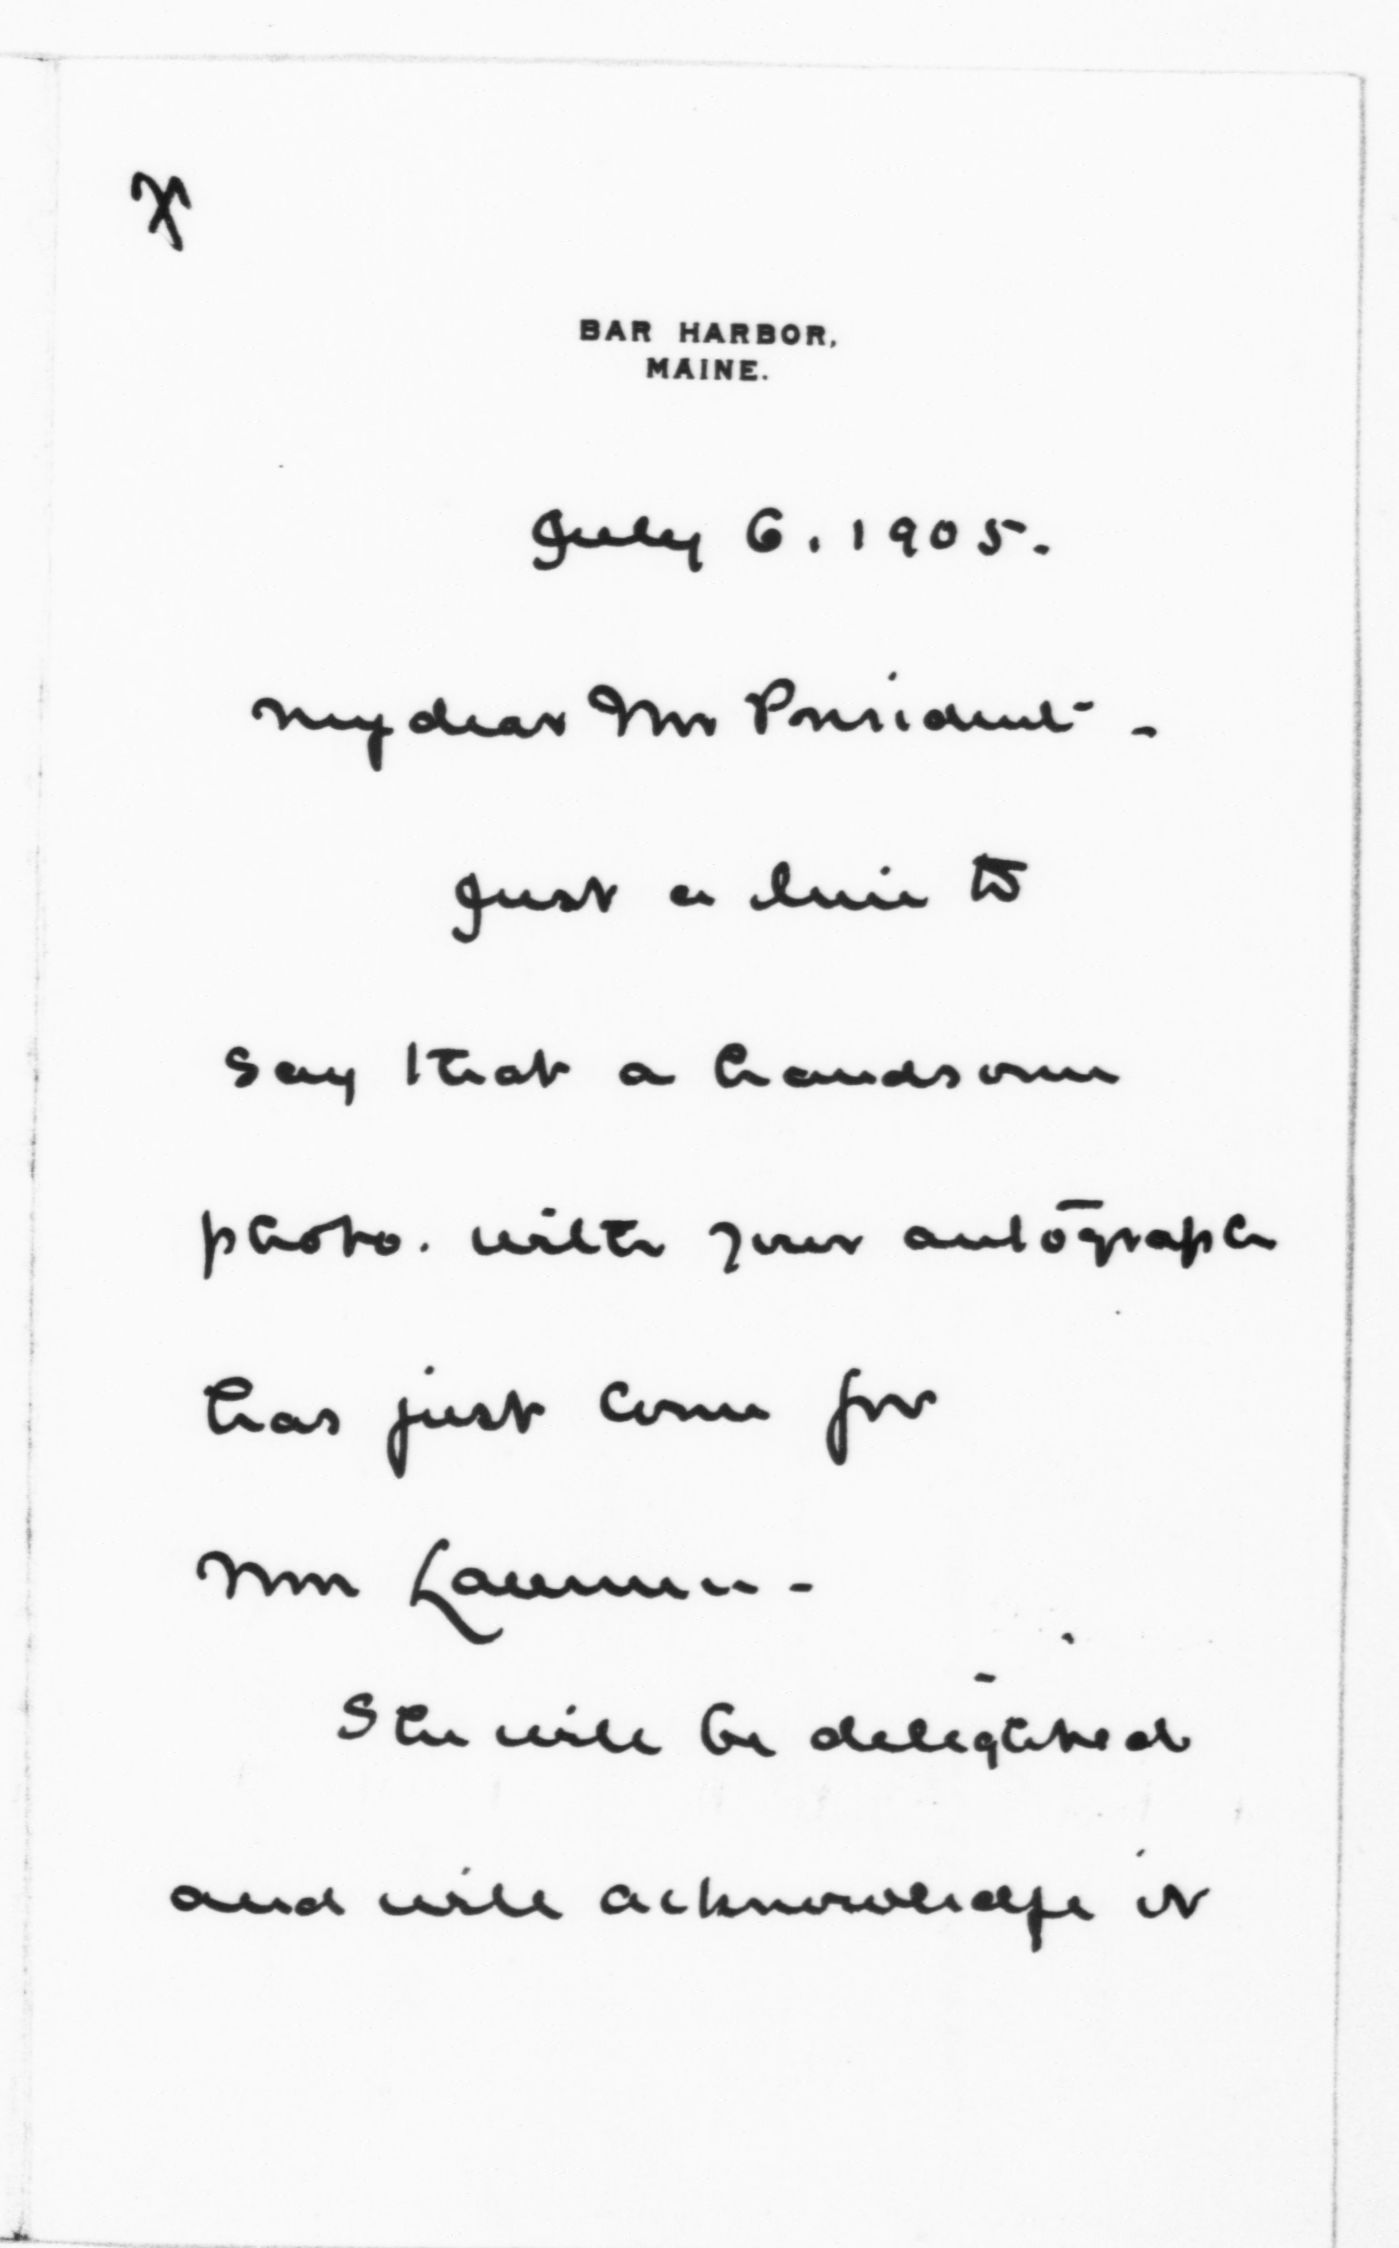 X
BAR HARBOR,
MAINE.
July 6. 1905.
My dear Mr President -
Just a line to
say that a handsome
photo. with your autograph
has just come for
Mrs
She will be delighted
and will acknowledge it